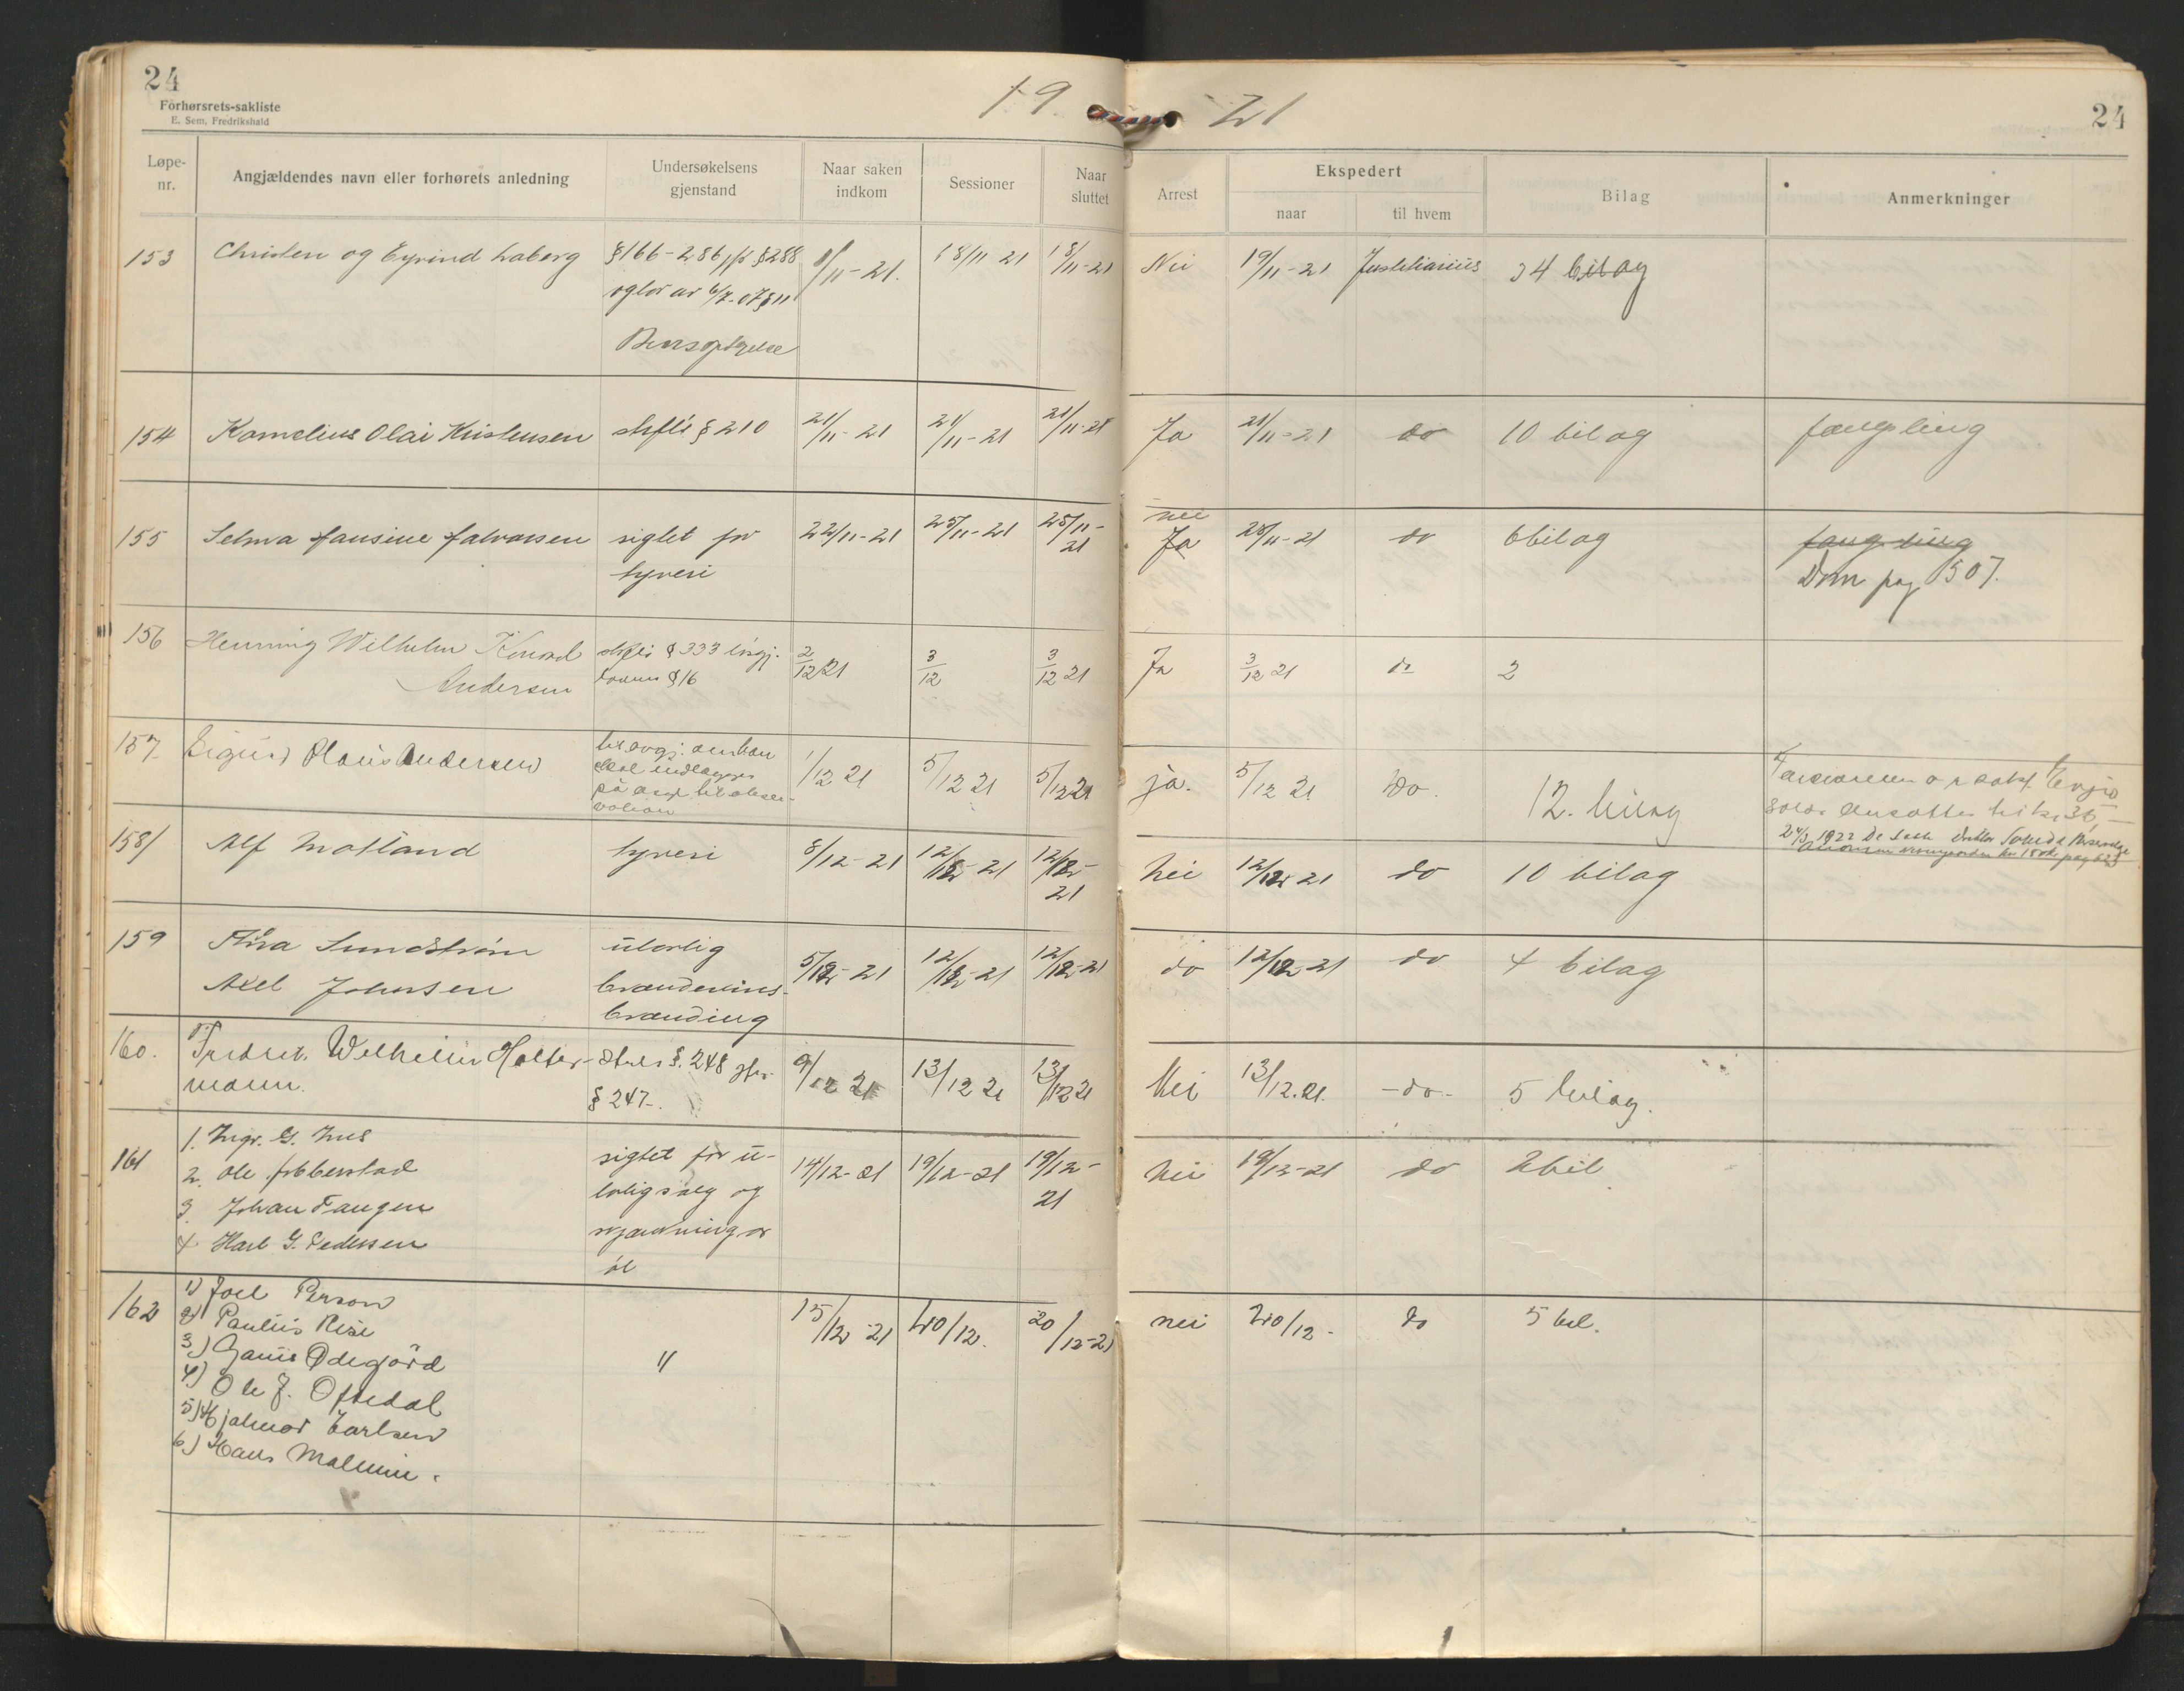 24
Forhørsrets-sakliste
E. Sem, Fredrikshald
19 21
24
Løpe-nr.
Angjældendes navn eller forhørets anledning
Undersøkelsens gjenstand
Naar saken indkom
Sessioner
Naar sluttet
Arrest
Ekspedert
naar
til hvem
Bilag
Anmerkninger
153 Christen og Eyvind Loberg § 166 - 286, § 288 8/11-21. 18/11 21 18/11-21 Nei 19/11-21 Justitiarius 34 bilag
og lov av 6/7-07 § 11
154 Kornelius Olai Kristensen strfls § 210 21/11-21 21/11-21 21/11-21 Ja 21/11-21 do 10 bilag fængsling
nei
155 Selma Hansine Halvorsen sigtet for 22/11-21 25/11-21 25/11-21 Ja 28/11-21 do 6 bilag fængsling
tyveri Dom pag 507.
156 Henning Wilhelm Konrad strfls § 333 2/12 21 3/12 3/12 21 Ja 3/12 21 do 2
Andersen § 16
157. Sigurd Olaus Andersen 1/12 21 5/12 21 5/12 21 ja. 5/12 21 Do. 12. bilag
skal indlægges
på asyl til observation
24/3 1922
158/ Alf Motland tyveri 8/12-21 12/12-21 12/12-21 Nei 12/12 21 do 10 bilag
159 Åsa Sundstrøm ulovlig 5/12-21 12/12-21 12/12-21 do 12/12-21 do 4 bilag
Axel Johnsen brændevins-
brænding
160. Fredrik Wilhelm Holter- § 248 9/12 21 13/12 21 13/12 21 Nei 13/12.21. -do- 5 bilag.
mann. § 247.
161 1. Ingr. G. sigtet for u- 14/12-21 19/12-21 19/12-21 Nei 19/12-21 do 2 bil.
2. Ole lovlig salg og
3. Johan Fangen skjænkning av
4 Harl G. Pedersen øl
162 1) Joel Person 15/12-21 20/12. 20/12-21 nei 20/12- do 5 bil.
2) Paulus Rise
3) Ganus Ødegård "
4) Ole J. Oftedal
5) Hjalmar Carlsen
6) Hans Malmin.